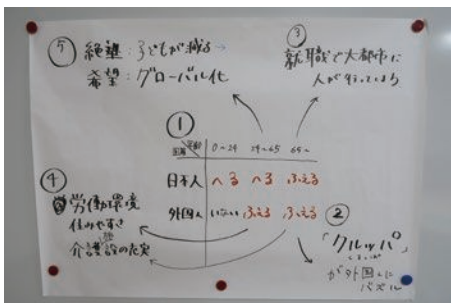 ⑤ 絶望：子どもが減る→
希望：グローバル化
③
就職で大都市に
人が行ってしまう
①
国籍 年齢 0～24 24～65 65～
日本人 へる へる ふえる
外国人 いない ふえる ふえる
④
労働環境
住みやすさ
介護施設の充実
②
「クルッパ」
が外国人に
バズル